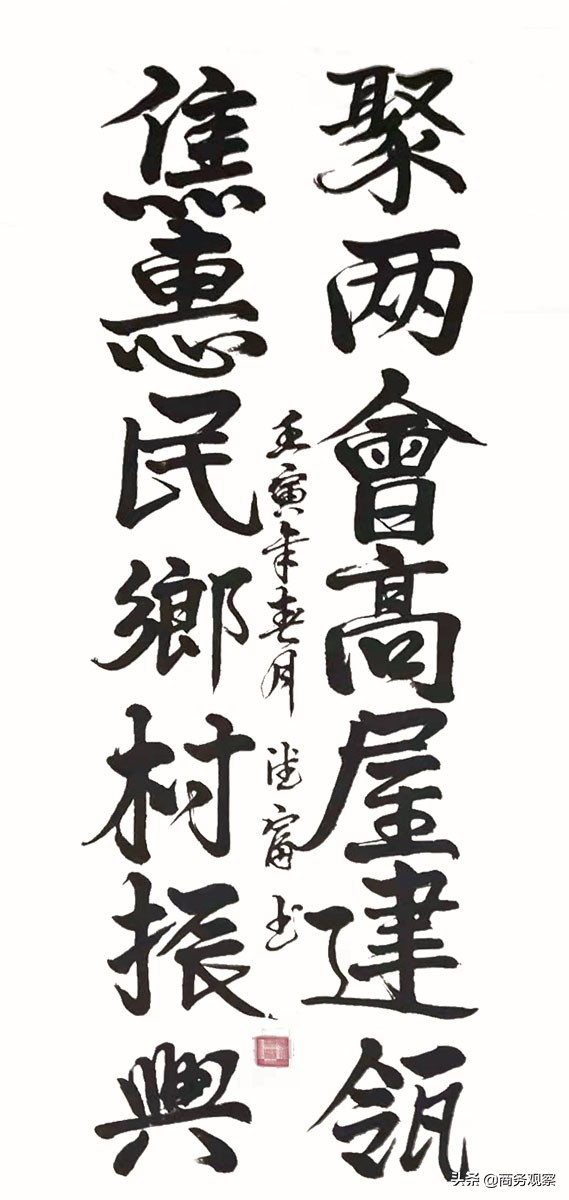 聚两會高屋建瓴
焦惠民鄉村振興
壬寅年春月 富书
头条 @商务观察